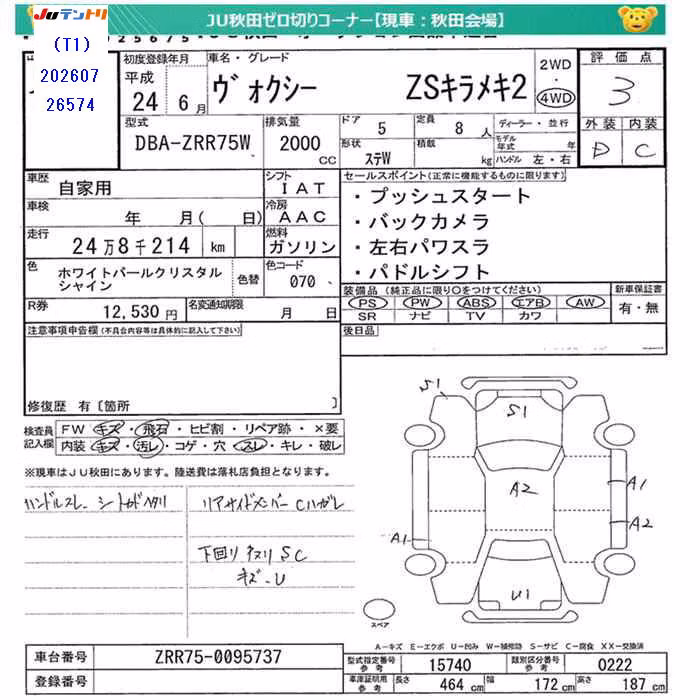 JUテントリ
JU秋田ゼロ切りコーナー【現車：秋田会場】
(T1)
202607
26574
初度登録年月
平成
24年 6月
車名・グレード
ヴォクシー ZSキラメキ2
2WD
・
4WD
評価点
3
型式
DBA-ZRR75W
排気量
2000 CC
ドア 5
定員 8人
形状 ステW
積載 kg
ディーラー・並行
モデル年式 年
ハンドル 左・右
外装 内装
D C
車歴 自家用
シフト IAT
車検 年 月( 日)
冷房 AAC
走行 24万8千214 km
燃料 ガソリン
色 ホワイトパールクリスタルシャイン
色替
色コード 070
R券 12,530円
名変通知期限 月 日
セールスポイント(正常に機能するものに限ります)
・プッシュスタート
・バックカメラ
・左右パワスラ
・パドルシフト
装備品(純正品に限り○をつけてください) 新車保証書
PS PW ABS エアB AW 有・無
SR ナビ TV カワ
後日品
注意事項申告欄(不具合内容等は具体的に記入して下さい)
修復歴 有〔箇所 〕
検査員記入欄
FW キズ・飛石・ヒビ割・リペア跡・×要
内装 キズ・汚レ・コゲ・穴・スレ・キレ・破レ
※現車はJU秋田にあります。陸送費は落札店負担となります。
ハンドルスレ シートガヘタリ
リアサイドメンバーCハガレ
下回りネスリSC
キズ-U
S1
S1
A2
A1
A2
A1
U1
スペア
A-キズ E-エクボ U-凹み W-補修跡 S-サビ C-腐食 XX-交換済
車台番号 ZRR75-0095737
登録番号
型式指定番号参考 15740
類別区分番号参考 0222
車庫証明用参考 長さ 464 cm 幅 172 cm 高さ 187 cm